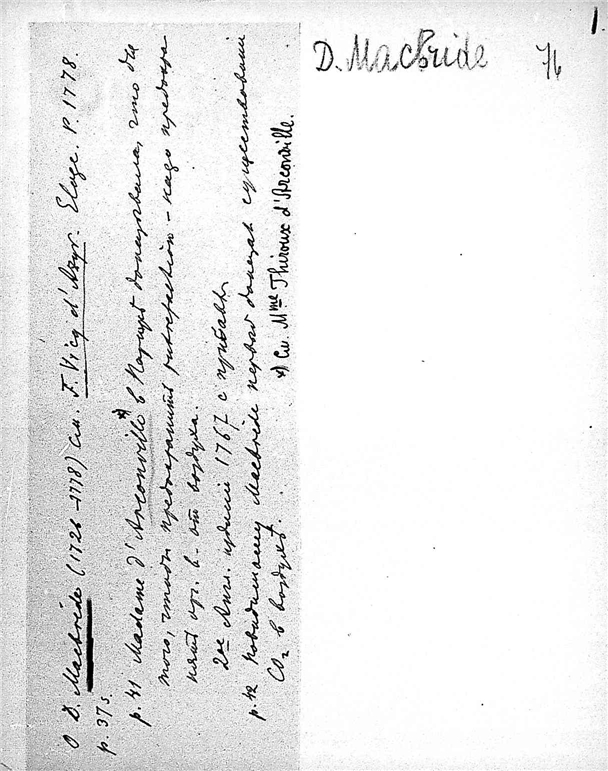 1.
D. MacBride 76
О D. Macbride (1726–1778) см. F. Vicq d'Azyr. Eloge. P. 1778.
p. 37 s.
p. 41 Madame d'Arconville *) в Париже доказывала, что для
того, чтобы предохранить putrefaction – надо предохра
нять орг. в. от воздуха.
2ое Англ. издание 1767 с прибавл.
p. 42 Повидимому Macbride первый доказал существование
CO2 в воздухе.
*) См. Mme Thiroux d'Arconville.